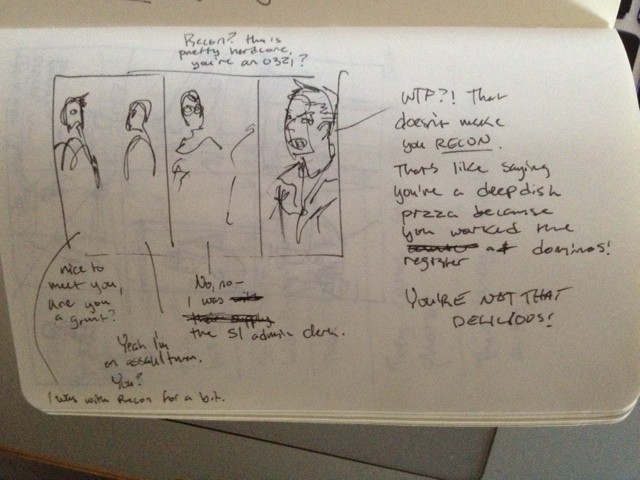 Recon? this is
pretty hardcore,
you're an 0321?
WTF?! That
doesn't make
you RECON.
That's like saying
you're a deep dish
pizza because
you worked the
at dominos!
register
YOU'RE NOT THAT
DELICIOUS!
nice to
meet you,
are you
a grunt?
Yeah I'm
an assaultman.
You?
I was with Recon for a bit.
No, no-
I was
their supply
the S1 admin clerk.